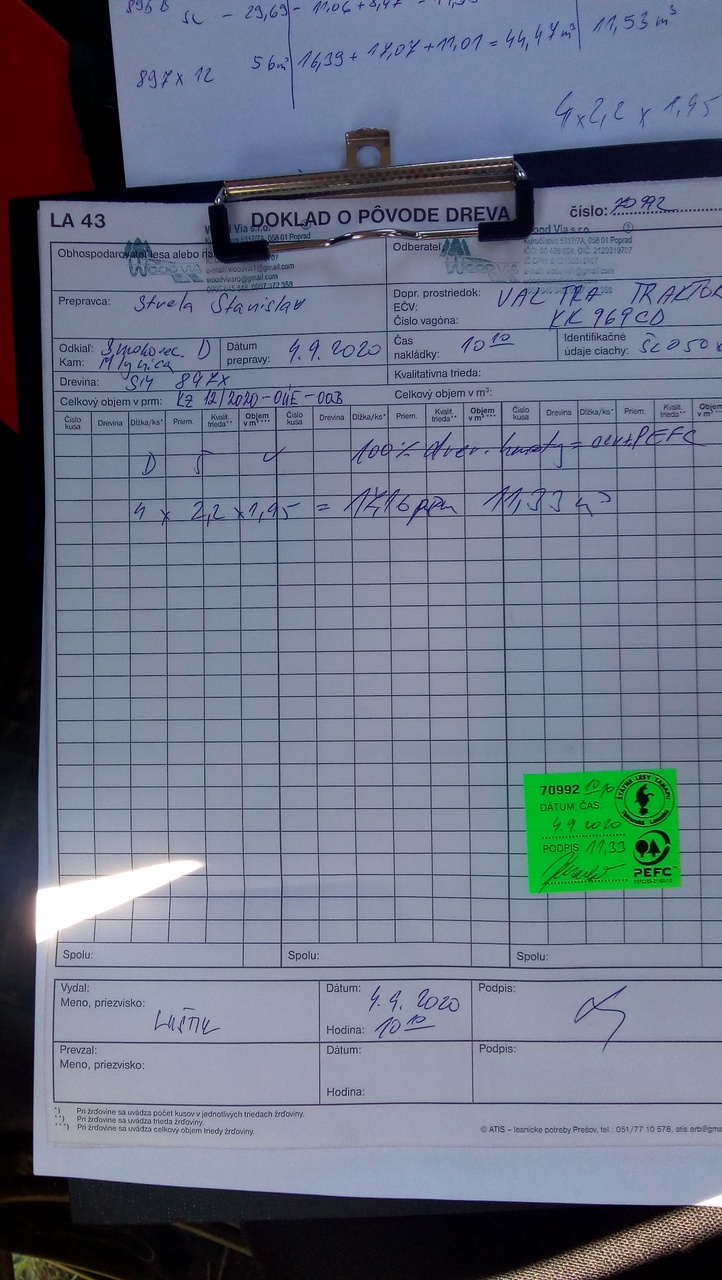 sc - 29,69 - 11,06 +
897 x 12 56m³ 16,39 + 17,07 + 11,01 = 44,47m³ 11,53 m³
4 x 2,2 x 1,95
LA 43 DOKLAD O PÔVODE DREVA číslo: 70992
Wood Via s.r.o.
058 01 Poprad
Obhospodarovateľ lesa alebo
WOODVIA
e-mail: woodvia1@gmail.com
Odberateľ
Wood Via s.r.o.
5317/7A, 058 01 Poprad
Prepravca: Strela Stanislav
Dopr. prostriedok: VALTRA TRAKTOR
EČV: KK 969CD
Číslo vagóna:
Odkiaľ: Smokovec D
Kam: Mlynica
Dátum prepravy: 4.9.2020
Čas nakládky: 10 10
Identifikačné údaje ciachy: ŠL 050
Drevina: SM 897x
Kvalitatívna trieda:
Celkový objem v prm: KZ 12/2020-04E-00B
Celkový objem v m³:
Číslo kusa Drevina Dĺžka/ks* Priem. Kvalit. trieda** Objem v m³*** Číslo kusa Drevina Dĺžka/ks* Priem. Kvalit. trieda** Objem v m³*** Číslo kusa Drevina Dĺžka/ks* Priem. Kvalit. trieda** Objem v m³***
D 5 100% drev. hmoty = cert PEFC
4 x 2,2 x 1,95 = 17,16 prm 11,33 m³
70992 10/10
ŠTÁTNE LESY TANAPU
Tatranská Lomnica
DÁTUM ČAS.
4.9 2020
PODPIS 11,33
PEFC™
Spolu: Spolu: Spolu:
Vydal:
Meno, priezvisko:
LUŠTIK
Dátum: 4.9.2020
Hodina: 10 10
Podpis:
Prevzal:
Meno, priezvisko:
Dátum:
Hodina:
Podpis:
*) Pri žrďovine sa uvádza počet kusov v jednotlivých triedach žrďoviny.
**) Pri žrďovine sa uvádza trieda žrďoviny.
***) Pri žrďovine sa uvádza celkový objem triedy žrďoviny.
© ATIS – lesnícke potreby Prešov, tel.: 051/77 10 578, atis.erb@gma